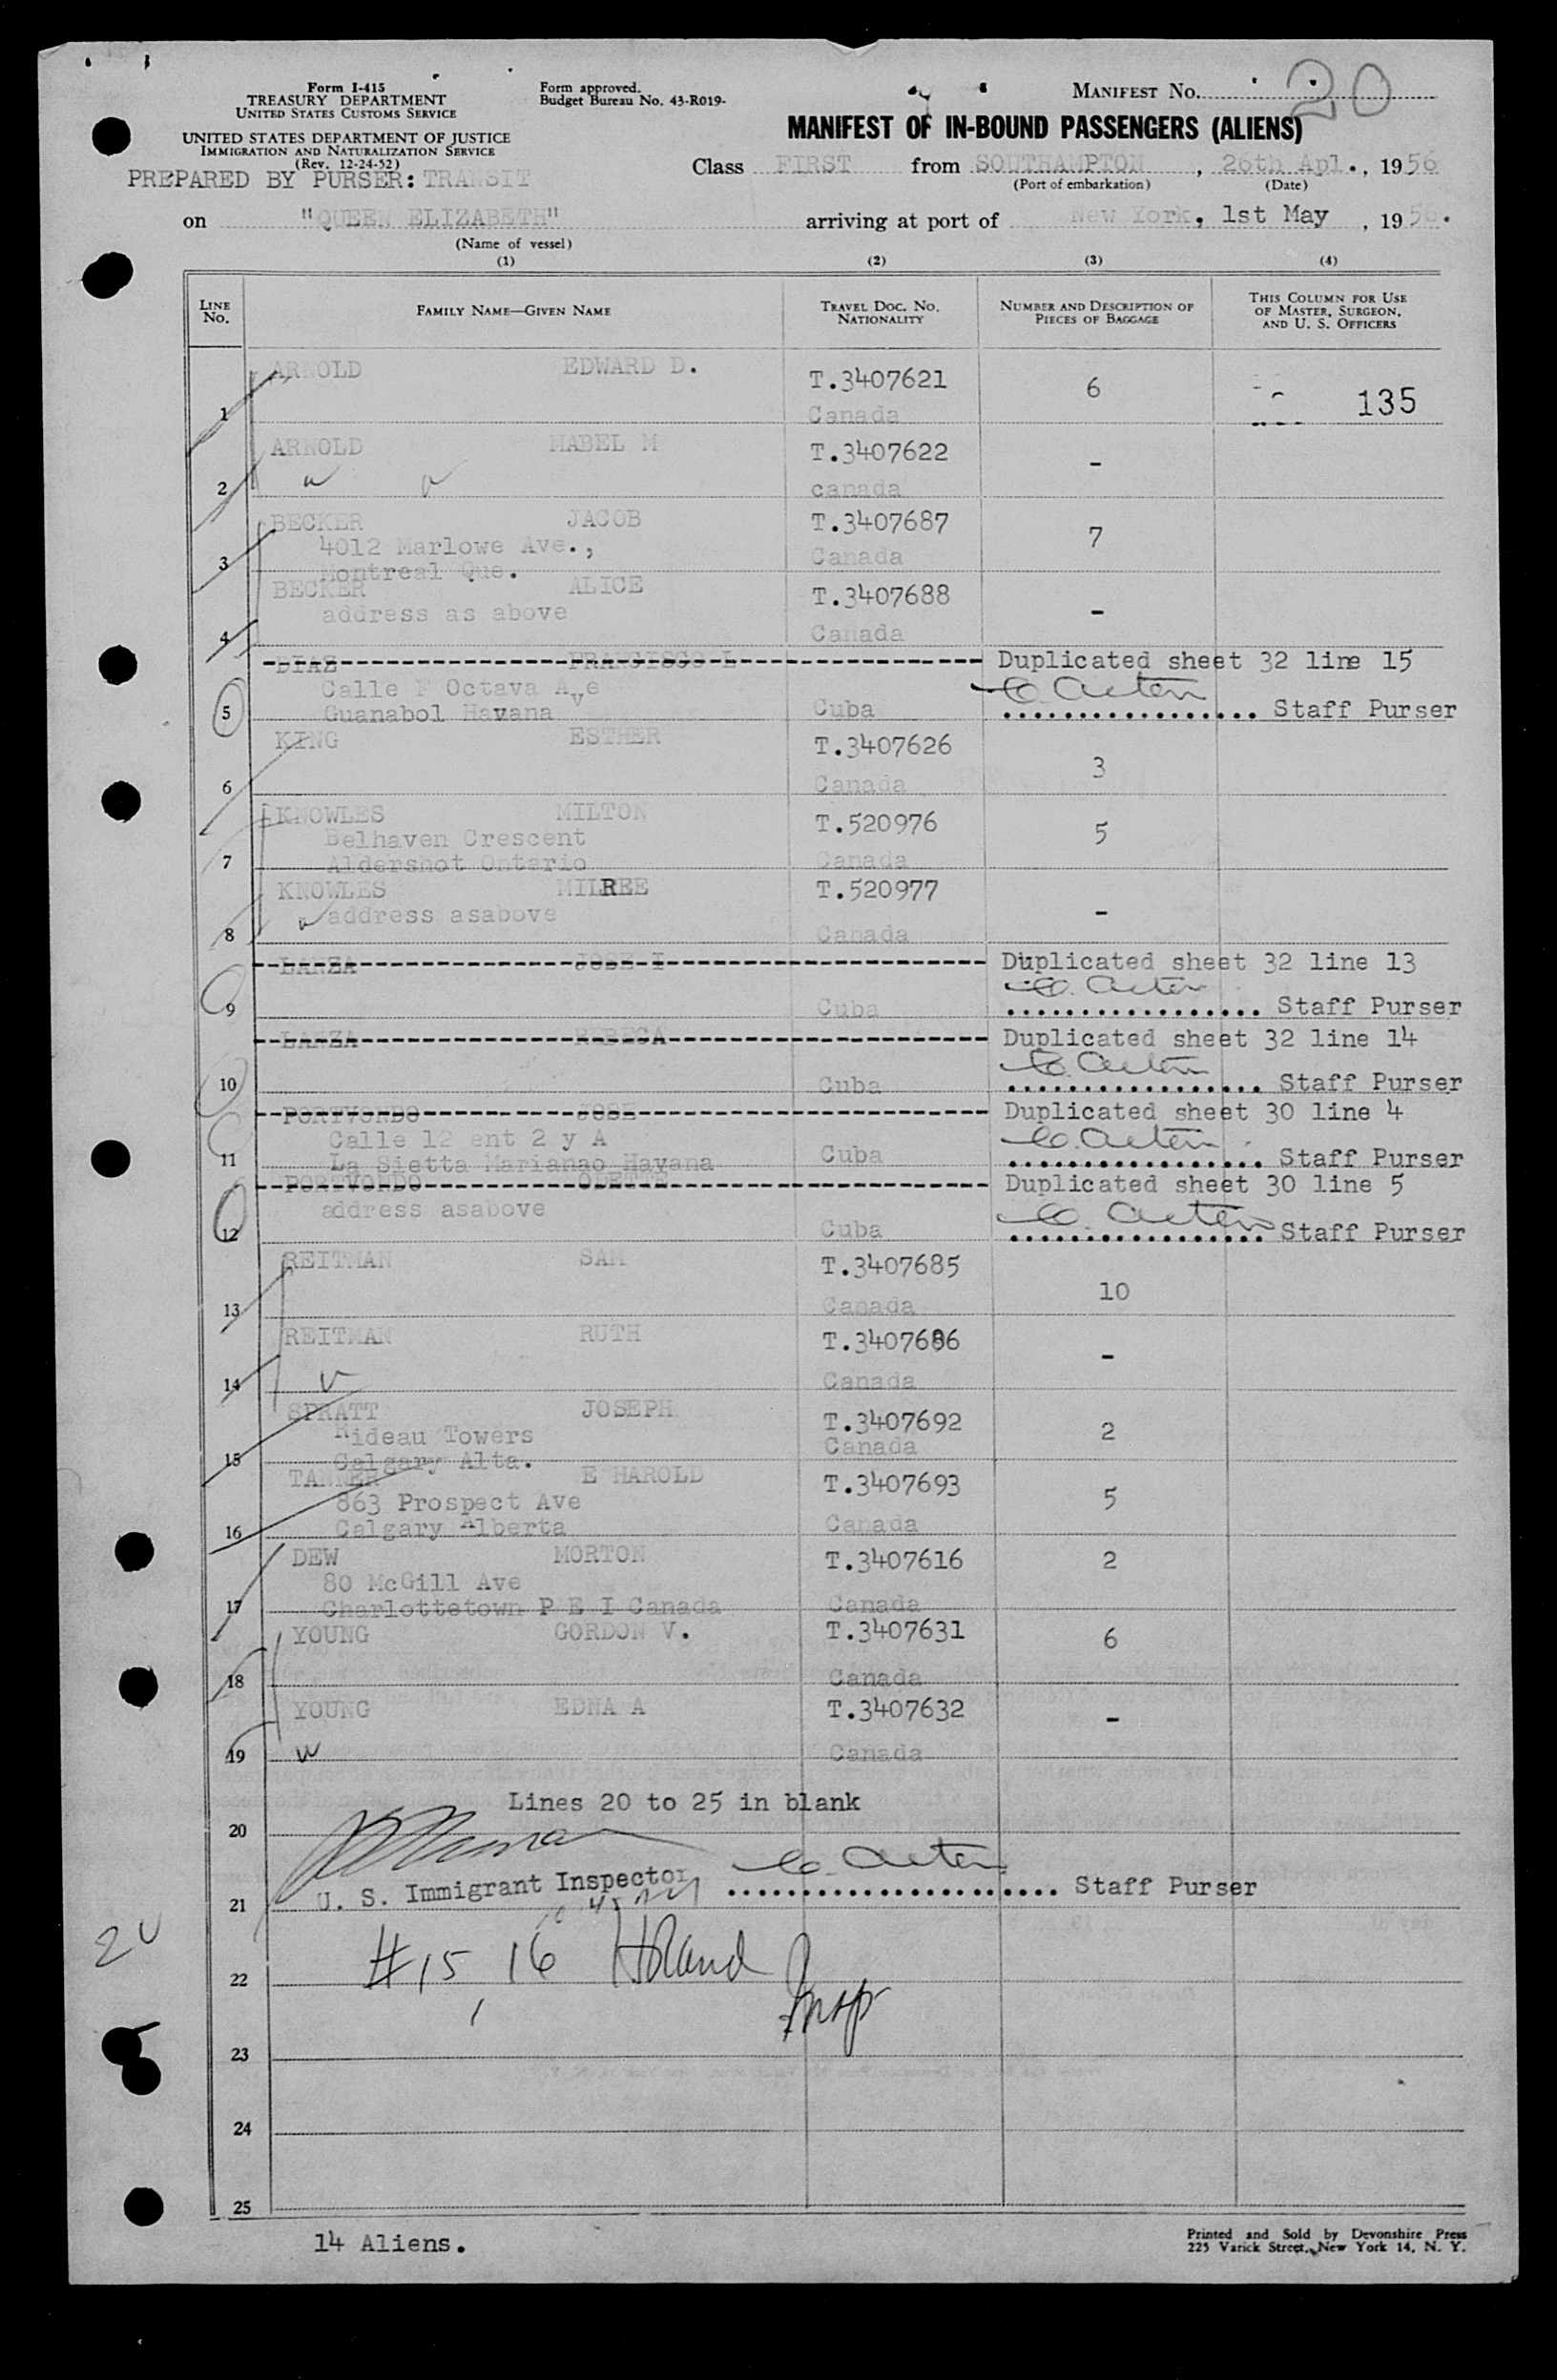 Form I-415
TREASURY DEPARTMENT
UNITED STATES CUSTOMS SERVICE
UNITED STATES DEPARTMENT OF JUSTICE
IMMIGRATION AND NATURALIZATION SERVICE
(Rev. 12-24-52)
PREPARED BY PURSER: TRANSIT
Form approved.
Budget Bureau No. 43-R019-
MANIFEST No. 20
MANIFEST OF IN-BOUND PASSENGERS (ALIENS)
Class FIRST from SOUTHAMPTON, 26th Apl., 1956
(Port of embarkation) (Date)
on "QUEEN ELIZABETH" arriving at port of New York, 1st May, 1956.
(Name of vessel)
(1) (2) (3) (4)
LINE No. FAMILY NAME—GIVEN NAME TRAVEL DOC. No. NATIONALITY NUMBER AND DESCRIPTION OF PIECES OF BAGGAGE THIS COLUMN FOR USE OF MASTER, SURGEON, AND U. S. OFFICERS
ARNOLD EDWARD D. T.3407621 6 135
1 Canada
ARNOLD MABEL M T.3407622 -
2 canada
BECKER JACOB T.3407687 7
4012 Marlowe Ave.,
3 Montreal Que. Canada
BECKER ALICE T.3407688 -
address as above
4 Canada
DIAZ FRANCISCO L Duplicated sheet 32 line 15
Calle F Octava Ave
5 Guanabol Havana Cuba Staff Purser
KING ESTHER T.3407626 3
6 Canada
KNOWLES MILTON T.520976 5
Belhaven Crescent
7 Aldershot Ontario Canada
KNOWLES MILREE T.520977 -
address asabove
8 Canada
LANZA JOSE I Duplicated sheet 32 line 13
9 Cuba Staff Purser
LANZA REBECA Duplicated sheet 32 line 14
10 Cuba Staff Purser
PORTVONDO JOSE Duplicated sheet 30 line 4
Calle 12 ent 2 y A
11 La Sietta Marianao Havana Cuba Staff Purser
PORTVONDO ODETTE Duplicated sheet 30 line 5
address asabove
12 Cuba Staff Purser
REITMAN SAM T.3407685 10
13 Canada
REITMAN RUTH T.3407686 -
14 Canada
SPRATT JOSEPH T.3407692 2
Rideau Towers Canada
15 Calgary Alta.
TANNER E HAROLD T.3407693 5
863 Prospect Ave
16 Calgary Alberta Canada
DEW MORTON T.3407616 2
80 McGill Ave
17 Charlottetown P E I Canada Canada
YOUNG GORDON V. T.3407631 6
18 Canada
YOUNG EDNA A T.3407632 -
19 Canada
Lines 20 to 25 in blank
20
U. S. Immigrant Inspector Staff Purser
21
20
#15 16 Holand
22
Insp
23
24
25
14 Aliens.
Printed and Sold by Devonshire Press
225 Varick Street, New York 14, N. Y.